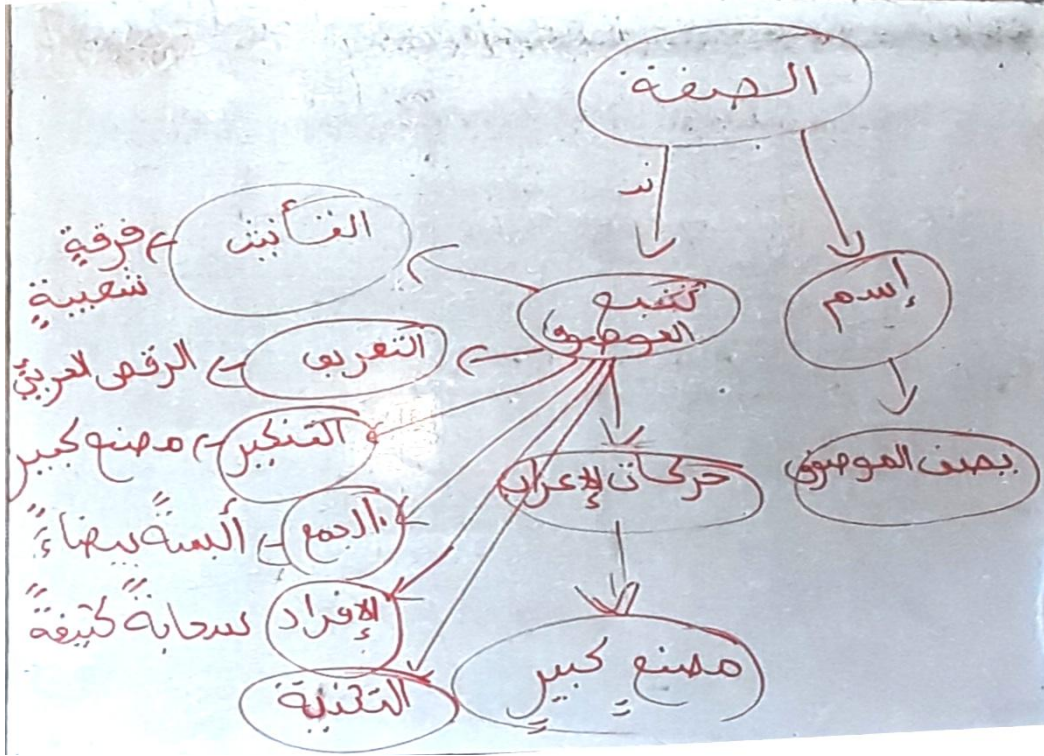 الصفة
إسم
يصف الموصوف
تتبع
الموصوف
حركات الإعراب
مصنعٍ كبيرٍ
التأنيث
فرقةٍ
شعبيةٍ
التعريف
الرقص العربيّ
التنكير
مصنع كبير
الجمع
ألبسةً بيضاءً
الإفراد
سحابةً كثيفةً
التثنية